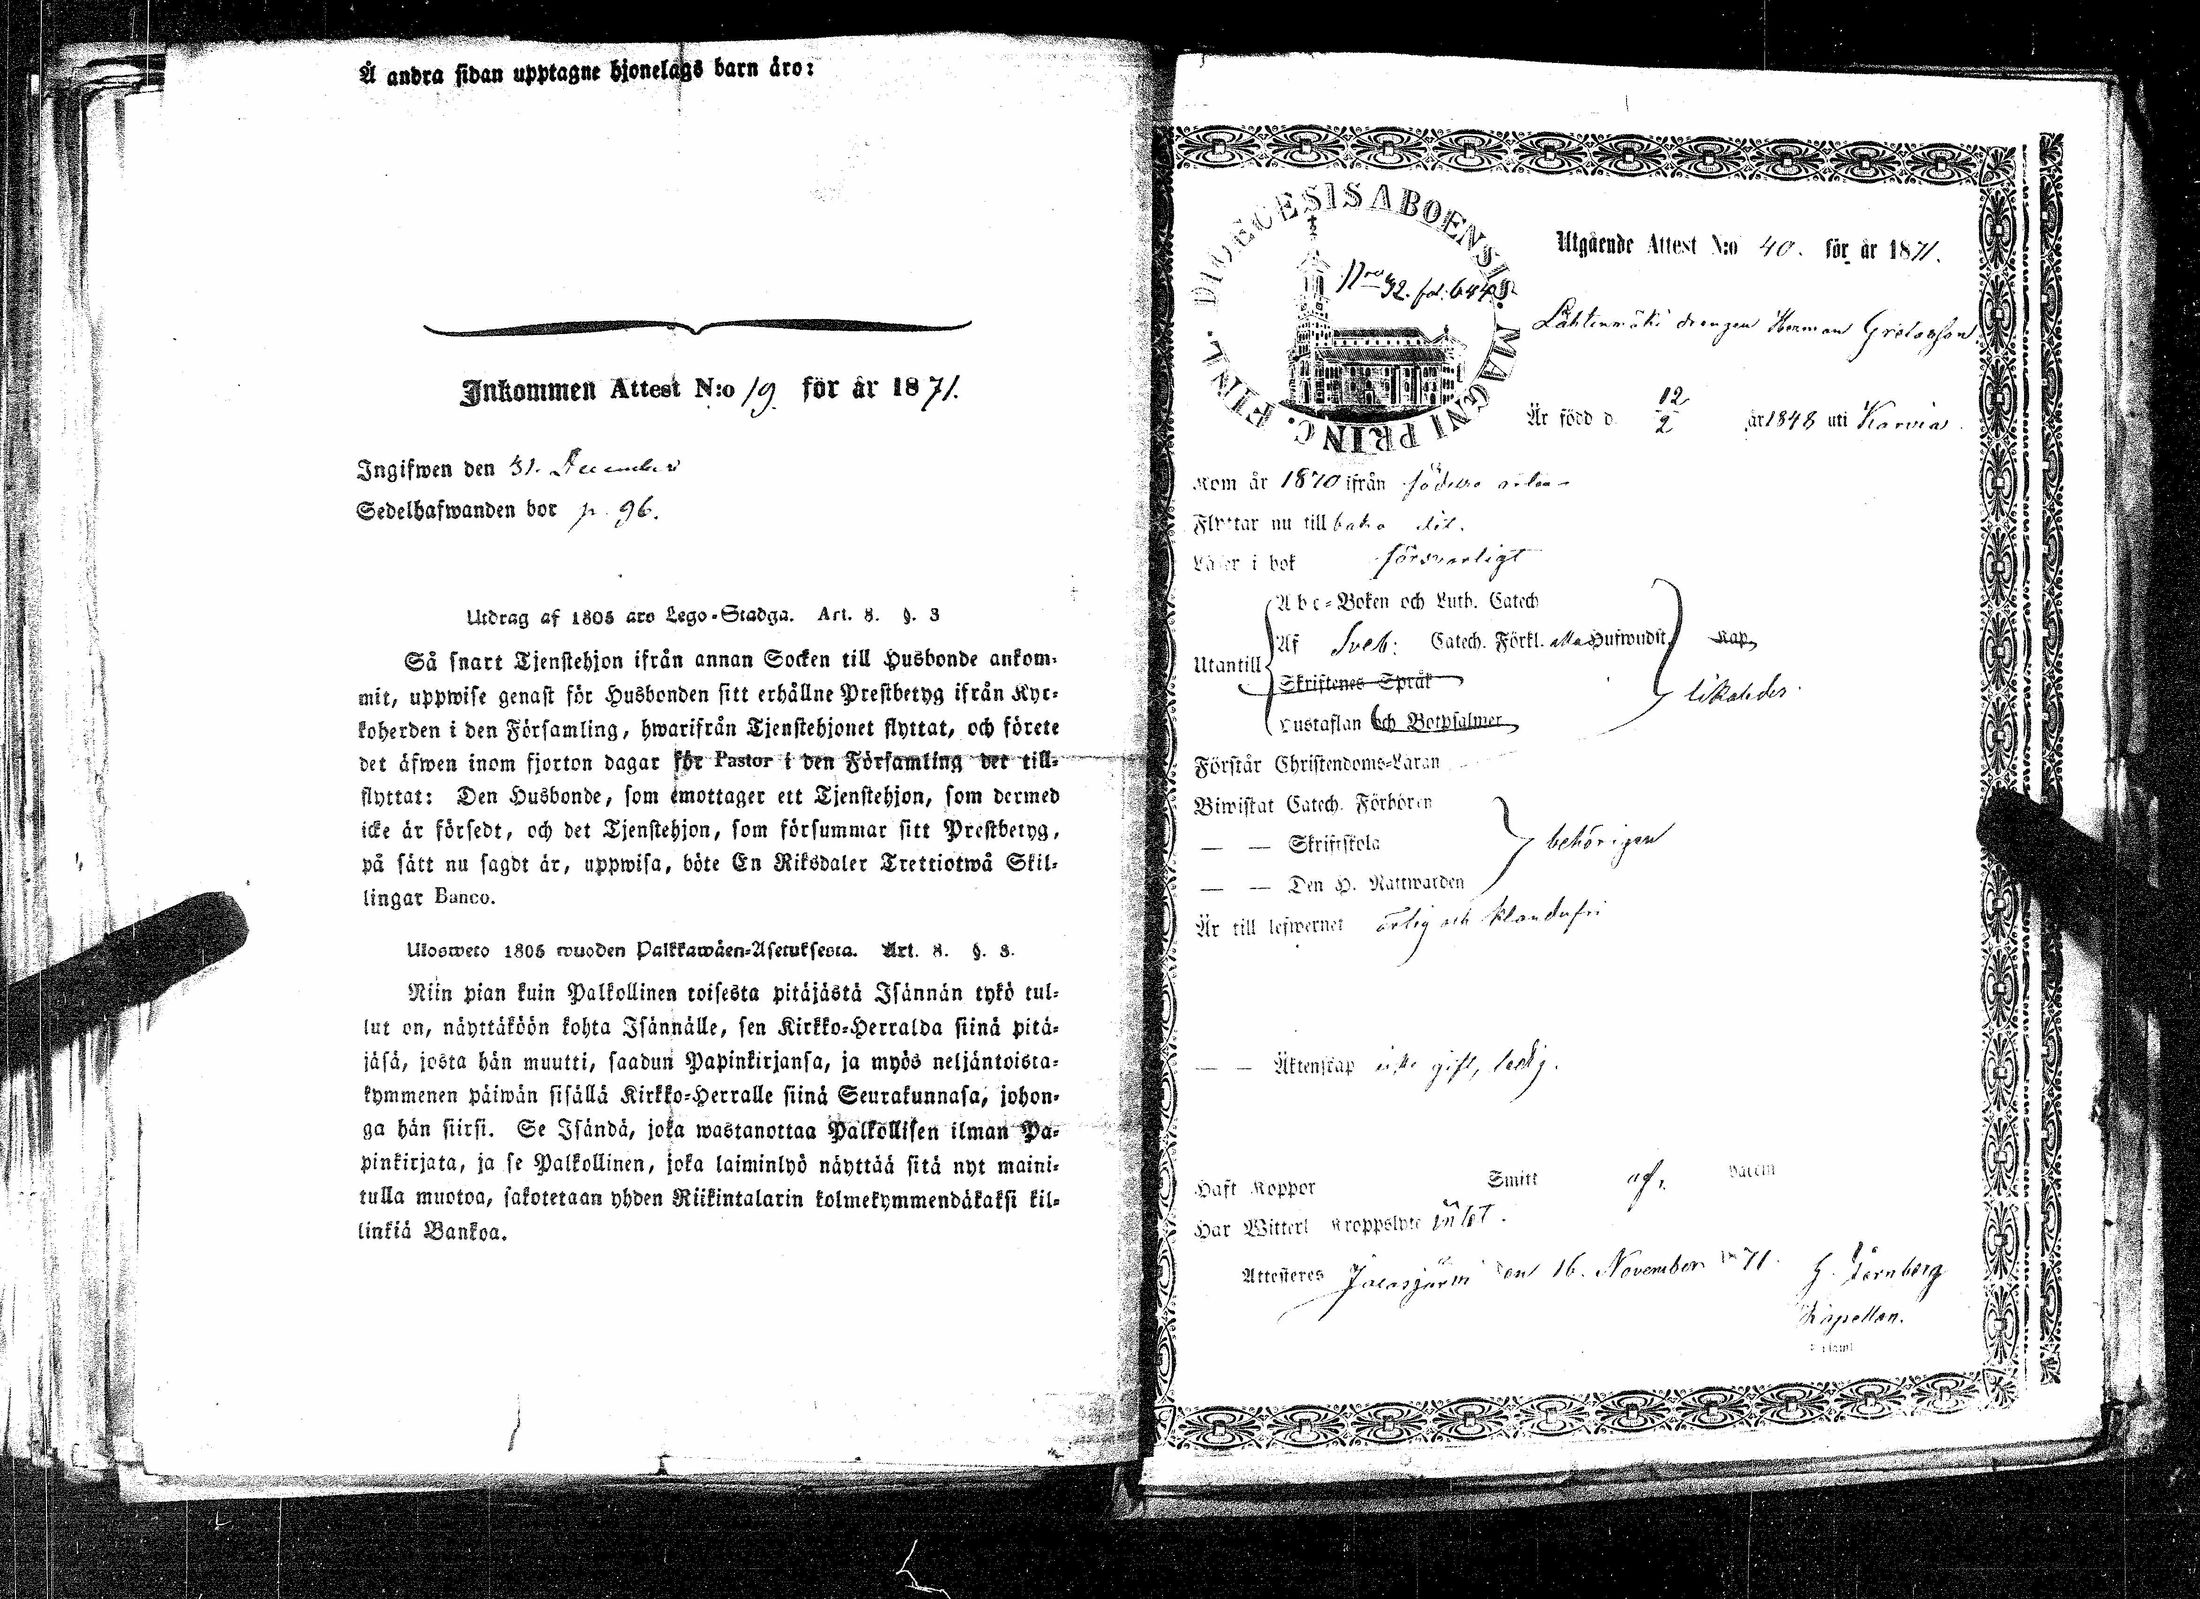 Å andra sidan upptagne hjonelags barn äro:
Inkommen Attest N:o 19. för år 1871.
Ingifwen den 31. December
Sedelhafwanden bor p. 96.
Utdrag af 1805 års Lego-Stadga. Art. 8. §. 3
Så snart Tjenstehjon ifrån annan Socken till Husbonde ankom-
mit, uppwise genast för Husbonden sitt erhållne Prestbetyg ifrån Kyr-
koherden i den Församling, hwarifrån Tjenstehjonet flyttat, och förete
det äfwen inom fjorton dagar för Pastor i den Församling det till-
flyttat: Den Husbonde, som emottager ett Tjenstehjon, som dermed
icke är försedt, och det Tjenstehjon, som försummar sitt Prestbetyg,
på sätt nu sagdt är, uppwisa, böte En Riksdaler Trettiotwå Skil-
lingar Banco.
Ulosweto 1805 wuoden Palkkawäen-Asetuksesta. Art. 8. §. 3.
Niin pian kuin Palkollinen toisesta pitäjästä Isännän tykö tul-
lut on, näyttäköön kohta Isännälle, sen Kirkko-Herralda siinä pitä-
jäsä, josta hän muutti, saadun Papinkirjansa, ja myös neljäntoista-
kymmenen päiwän sisällä Kirkko-Herralle siinä Seurakunnasa, johon-
ga hän siirsi. Se Isändä, joka wastanottaa Palkollisen ilman Pa-
pinkirjata, ja se Palkollinen, joka laiminlyö näyttää sitä nyt maini-
tulla muotoa, sakotetaan yhden Riikintalarin kolmekymmendäkaksi kil-
linkiä Bankoa.
DIOECESIS ABOENSIS. MAGNI PRINC. FINL.
N:ro 32. fol. 644
Utgående Attest N:o 40. för år 1871.
Lähtenmäki drengen Herman
Är född d. 12/2 år 1848 uti Karvia.
Kom år 1870 ifrån födelse orten
Flyttar nu till baka dit.
Läser i bok försvarligt
Utantill
Abc-Boken och Luth. Catech
Af Sveb: Catech. Förkl. alla Hufwudst. Kap.
Skriftenes Språk
Hustaflan och Botpsalmer
likaledes.
Förstår Christendoms-Läran
Biwistat Catech. Förhören
— — Skriftskola
— — Den H. Nattwarden
behörigen
Är till lefwernet ärlig och klanderfri
— — Äktenskap icke gift, ledig.
Haft Koppor Smitt af. Vaccin
Har Witterl. Kroppslyte intet.
Attesteres Jalasjärvi den 16. November 1871.
G. Törnberg
Kapellan.